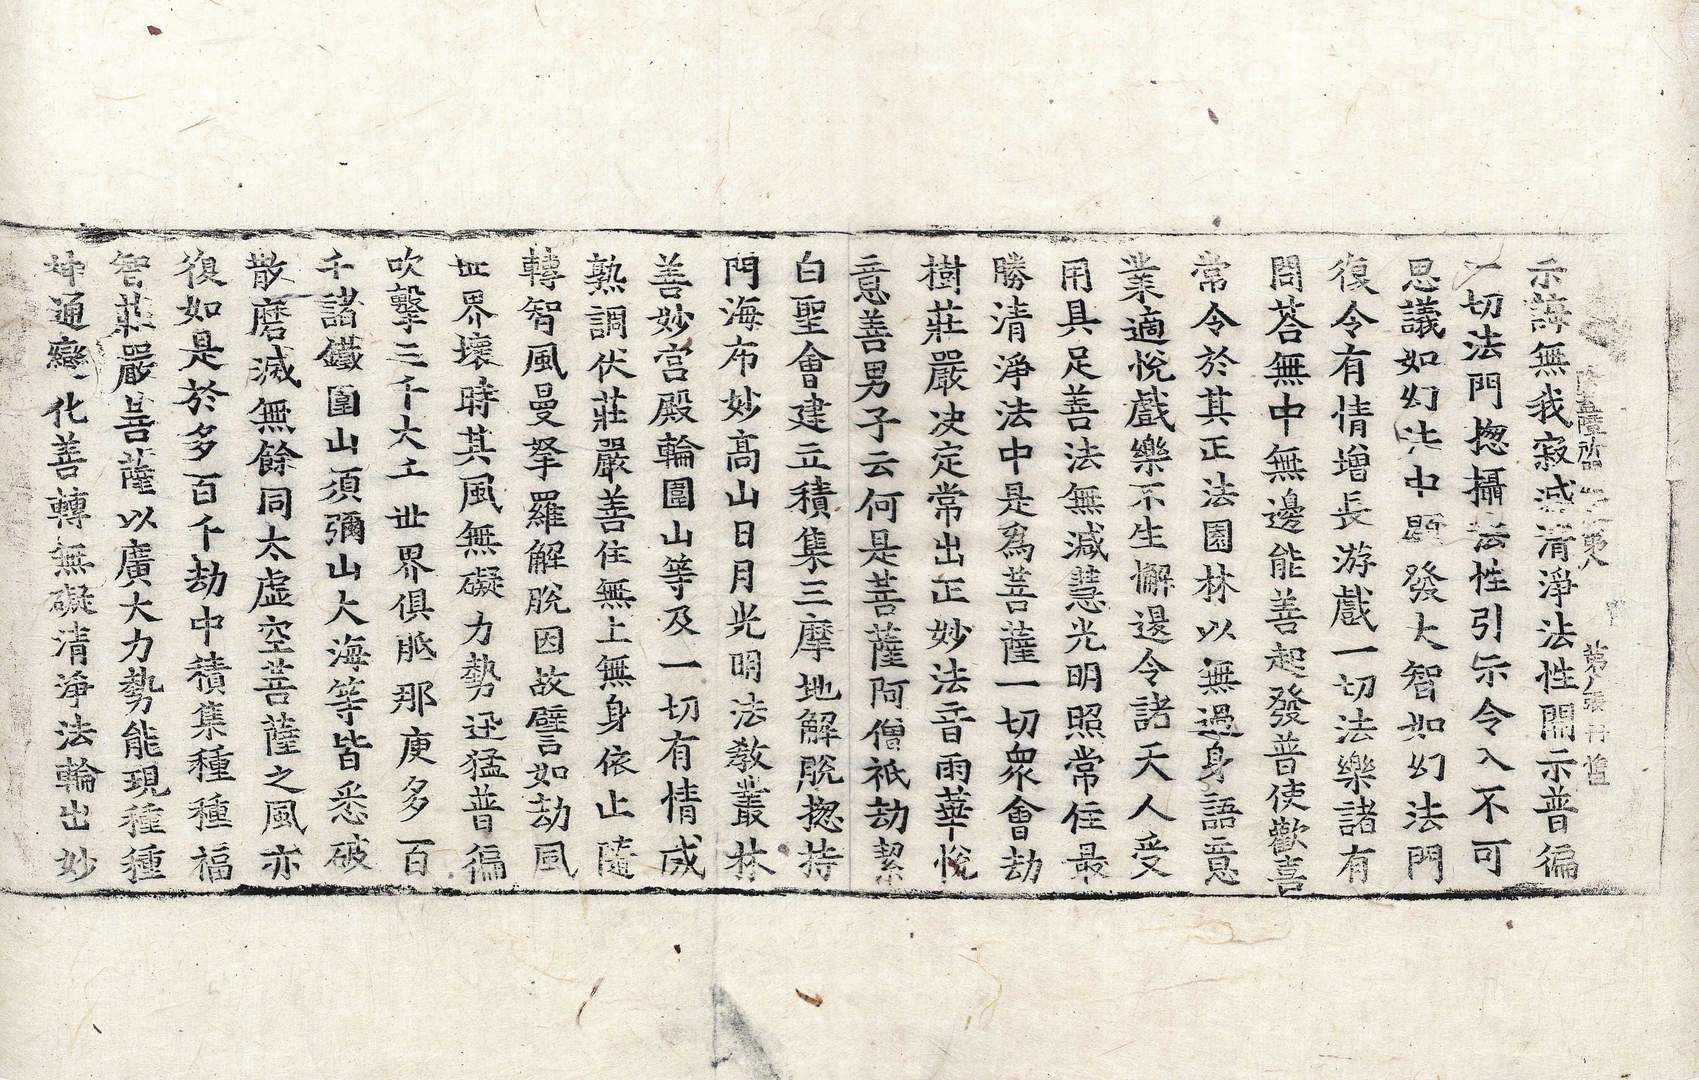 除蓋障所問經 第八張 甘 皆
示誨無我寂滅清淨法性開示普徧
一切法門揔攝法性引示令入不可
思議如幻法中題發大智如幻法門
復令有情增長游戲一切法樂諸有
問荅無中無邊能善起發普使歡喜
常令於其正法園林以無過身語意
業適悅戲樂不生懈邊令諸天人受
用具足善法無減慧光明照常住最
勝清淨法中是爲菩薩一切衆會劫
樹莊嚴決定常出正妙法音雨華悅
意善男子云何是菩薩阿僧祇劫潔
白聖會建立積集三摩地解脫揔持
門海布妙高山日月光明法教叢林
善妙宮殿輪圍山等及一切有情成
熟調伏莊嚴善住無上無身依止隨
轉智風曼拏羅解脫因故譬言如劫風
世界壞時其風無礙力勢迅猛普徧
吹擊三千大千世界俱胝那庾多百
千諸鐵圍山須彌山大海等皆悉破
散磨滅無餘同太虛空菩薩之風亦
復如是於多百千劫中積集種種福
智莊嚴菩薩以廣大力勢能現種種
神通變化善轉無礙清淨法輪出妙